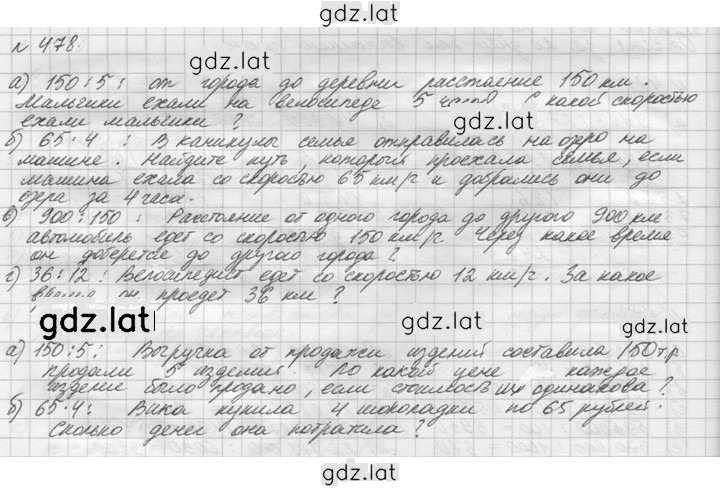 gdz.lat
№ 478.
а) 150:5: от города до деревни расстояние 150 км.
gdz.lat
Мальчики ехали на велосипеде 5 часов С какой скоростью
gdz.lat
ехали мальчики ?
б) 65·4 : В каникулы семья отправилась на озеро на
машине. Найдите путь, который проехала семья, если
машина ехала со скоростью 65 км/г и добрались они до
озера за 4 часа.
в) 900:150 : Расстояние от одного города до другого 900 км
автомобиль едет со скоростью 150 км/г. Через какое время
он доберется до другого города ?
г) 36:12 : Велосипедист едет со скоростью 12 км/г. За какое
он проедет 36 км ?
gdz.lat
gdz.lat
gdz.lat
а) 150:5: Выручка от продажи изделий составила 150 т.р
продали 5 изделия По какой цене каждое
изделие было продано, если стоимость их одинакова ?
б) 65·4: Вика купила 4 шоколадки по 65 рублей.
Сколько денег она потратила ?
gdz.lat